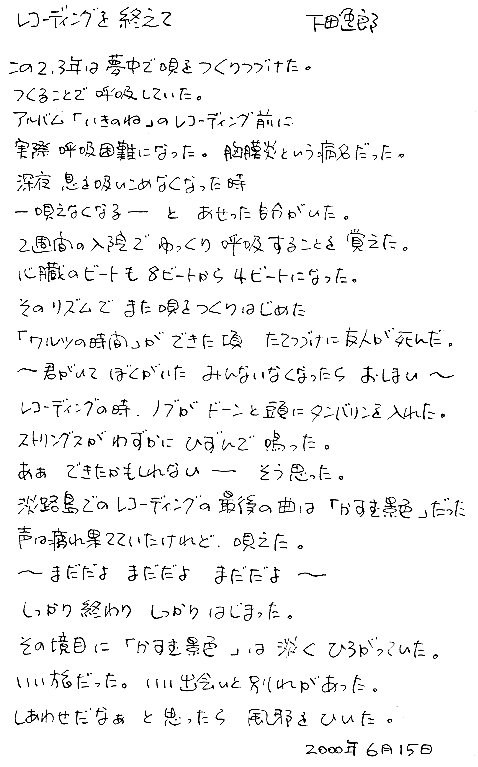 レコーディングを終えて　下田逸郎
この2,3年は夢中で唄をつくりつづけた。
つくることで呼吸していた。
アルバム「いきのね」のレコーディング前に
実際呼吸困難になった。胸膜炎という病名だった。
深夜息を吸いこめなくなった時
－唄えなくなる－とあせった自分がいた。
2週間の入院でゆっくり呼吸することを覚えた。
心臓のビートも8ビートから4ビートになった。
そのリズムでまた唄をつくりはじめた
「ワルツの時間」ができた頃　たてつづけに友人が死んだ。
～君がいて　ぼくがいた　みんないなくなったら　おしまい～
レコーディングの時、ノブがドーンと頭にタンバリンを入れた。
ストリングスがわずかにひずんで鳴った。
あぁ　できたかもしれない－そう思った。
淡路島でのレコーディングの最後の曲は「かすむ景色」だった
声は疲れ果てていたけれど、唄えた。
～まだだよ　まだだよ　まだだよ～
しっかり終わり　しっかりはじまった。
その境目に「かすむ景色」は淡くひろがっていた。
いい旅だった。いい出会いと別れがあった。
しあわせだなぁと思ったら　風邪をひいた。
2000年6月15日